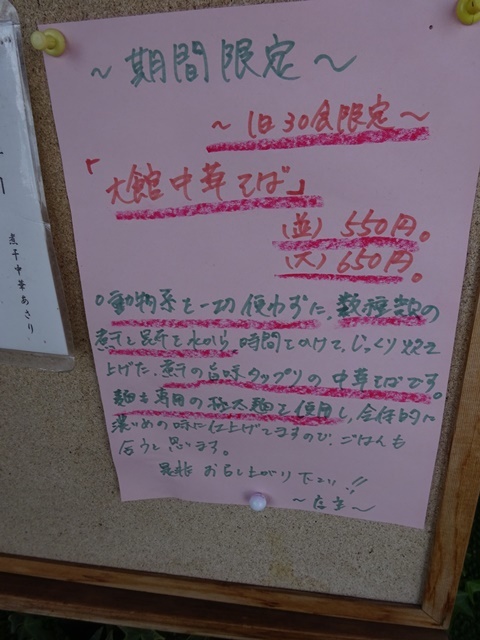 ～期間限定～
～1日30食限定～
「大館中華そば」
(並) 550円。
(大) 650円。
○動物系を一切使わずに、数種類の
煮干と昆布を水から時間をかけて、じっくり炊き
上げた、煮干の旨味タップリの中華そばです。
麺も専用の極太麺を使用し、全体的に
濃いめの味に仕上げてますので、ごはんも
合うと思います。
是非お召し上がり下さい!!
～店主～
煮干中華あさり